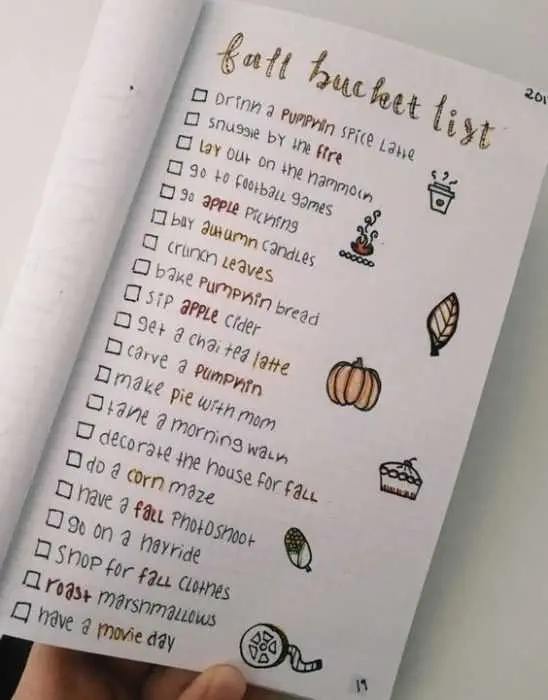 201
fall bucket list
drink a pumpkin spice latte
snuggle by the fire
lay out on the hammock
go to football games
go apple picking
buy autumn candles
crunch leaves
bake pumpkin bread
sip apple cider
get a chai tea latte
carve a pumpkin
make pie with mom
take a morning walk
decorate the house for fall
do a corn maze
have a fall photoshoot
go on a hayride
shop for fall clothes
roast marshmallows
have a movie day
19